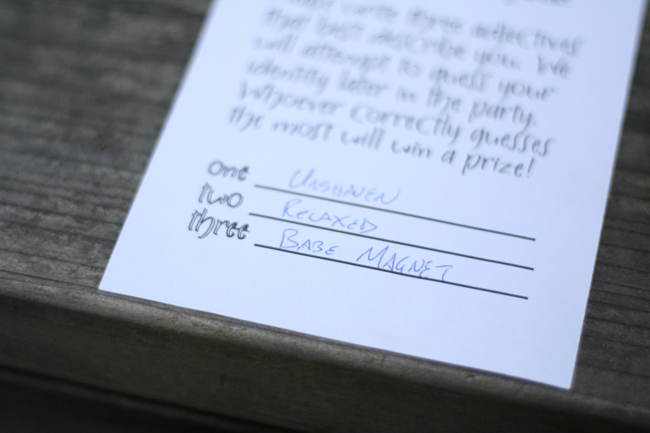 write three adjectives
that best describe you. We
will attempt to guess your
identity later in the party.
Whoever correctly guesses
the most will win a prize!
one Unshaven
two Relaxed
three Babe Magnet